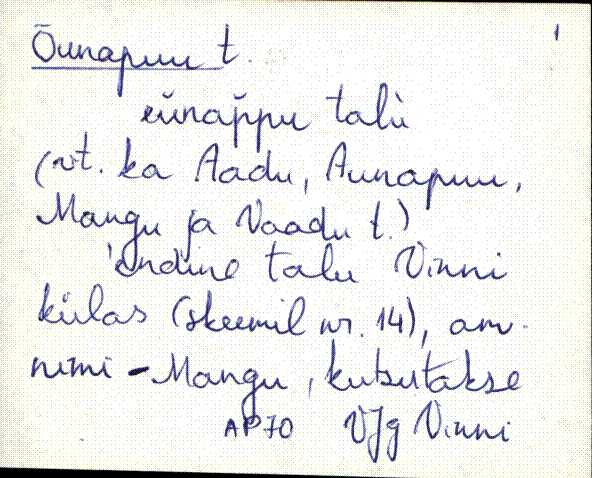 Õunapuu t.
1
eùnap̆pu talù
(vt. ka Aadu, Aunapuu,
Mangu ja Vaadu t.)
endine talu Vinni
külas (skeemil nr. 14), am.
nimi - Mangu, kutsutakse
AP70 VJg Vinni